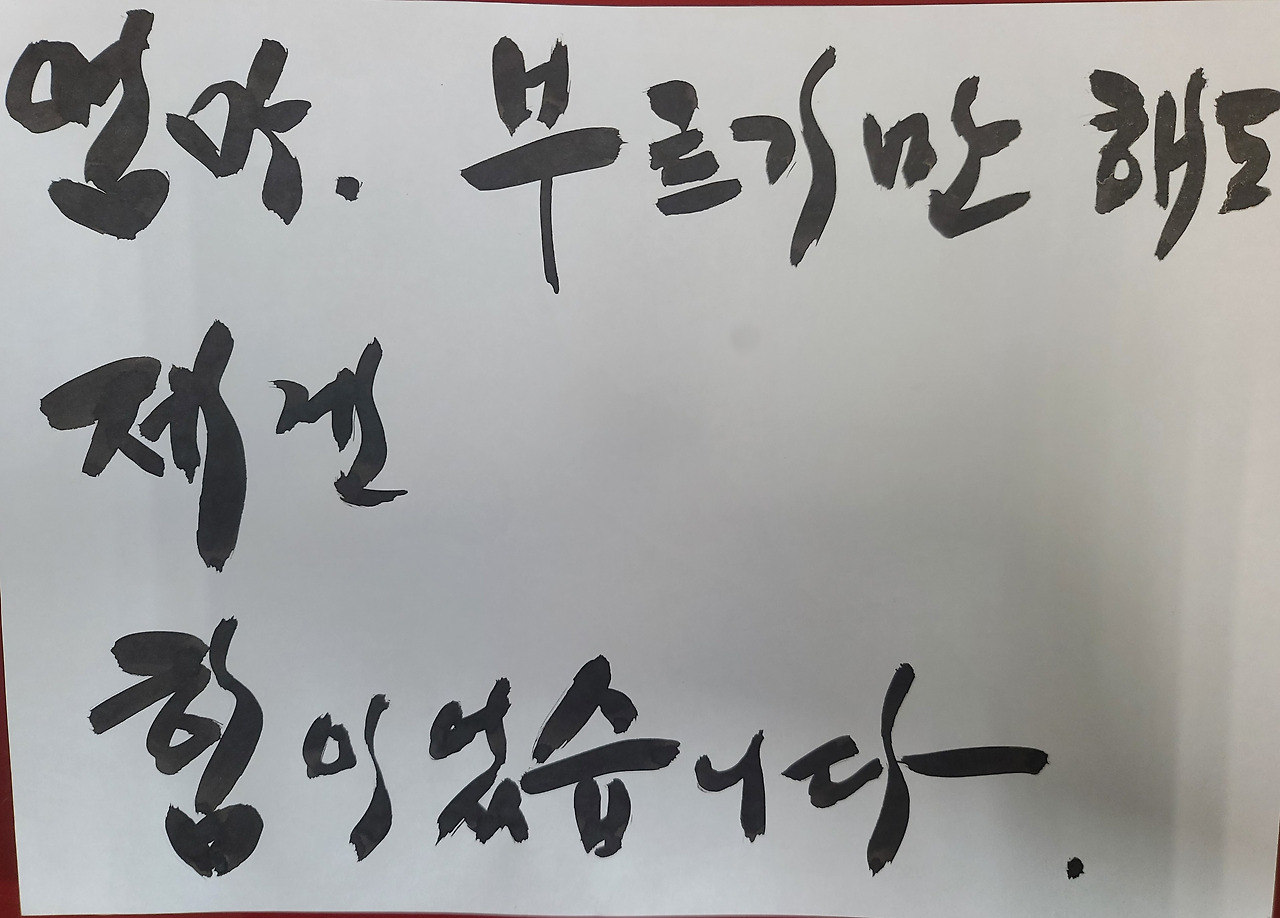 엄마. 부르기만 해도
제겐
힘이었습니다.